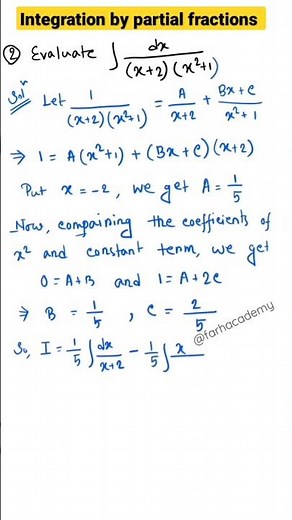 Integration by partial fractions
② Evaluate ∫ dx/((x+2)(x²+1))
Solⁿ Let 1/((x+2)(x²+1)) = A/(x+2) + (Bx+C)/(x²+1)
⇒ 1 = A(x²+1) + (Bx+C)(x+2)
Put x = -2, we get A = 1/5
Now, compairing the coefficients of
x² and constant term, we get
0 = A+B and 1 = A+2C
⇒ B = 1/5 , C = 2/5
@farhacademy
So, I = 1/5 ∫ dx/(x+2) - 1/5 ∫ x/